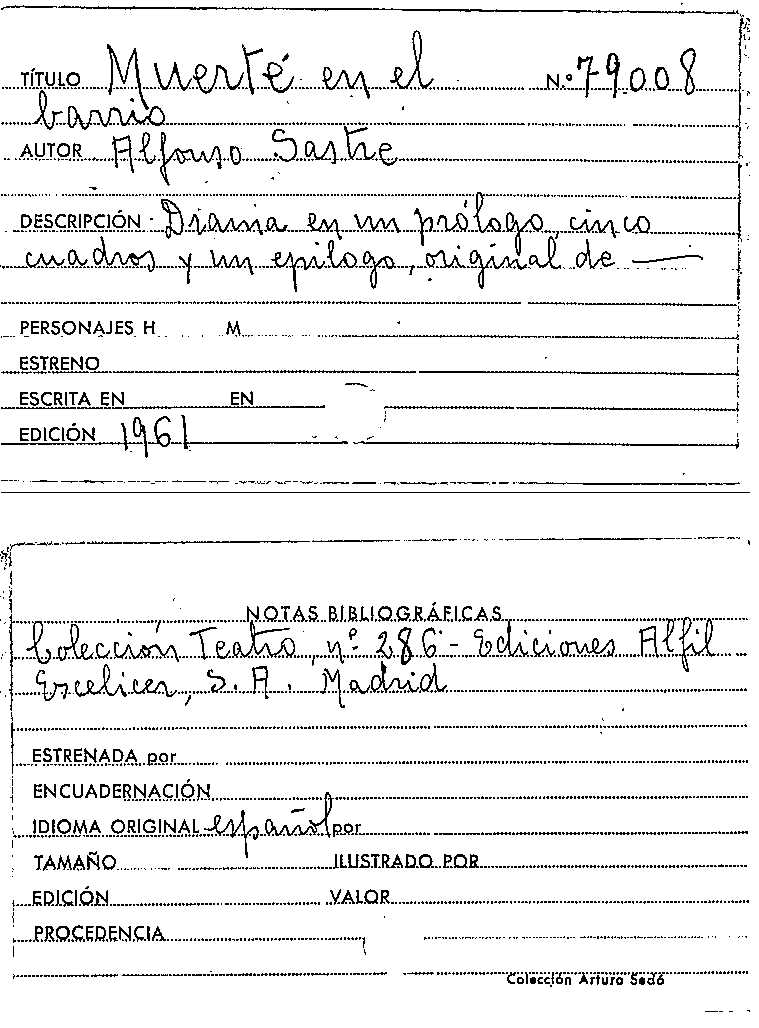 TÍTULO Muerte en el N.º 79.008
barrio
AUTOR Alfonso Sastre
DESCRIPCIÓN Drama en un prólogo, cinco
cuadros y un epílogo, original de —
PERSONAJES H M
ESTRENO
ESCRITA EN EN
EDICIÓN 1961
NOTAS BIBLIOGRÁFICAS
Colección Teatro, nº 286 - Ediciones Alfil
Escelicer, S. A. Madrid
ESTRENADA por
ENCUADERNACIÓN
IDIOMA ORIGINAL español por
TAMAÑO ILUSTRADO POR
EDICIÓN VALOR
PROCEDENCIA
Colección Arturo Sedó